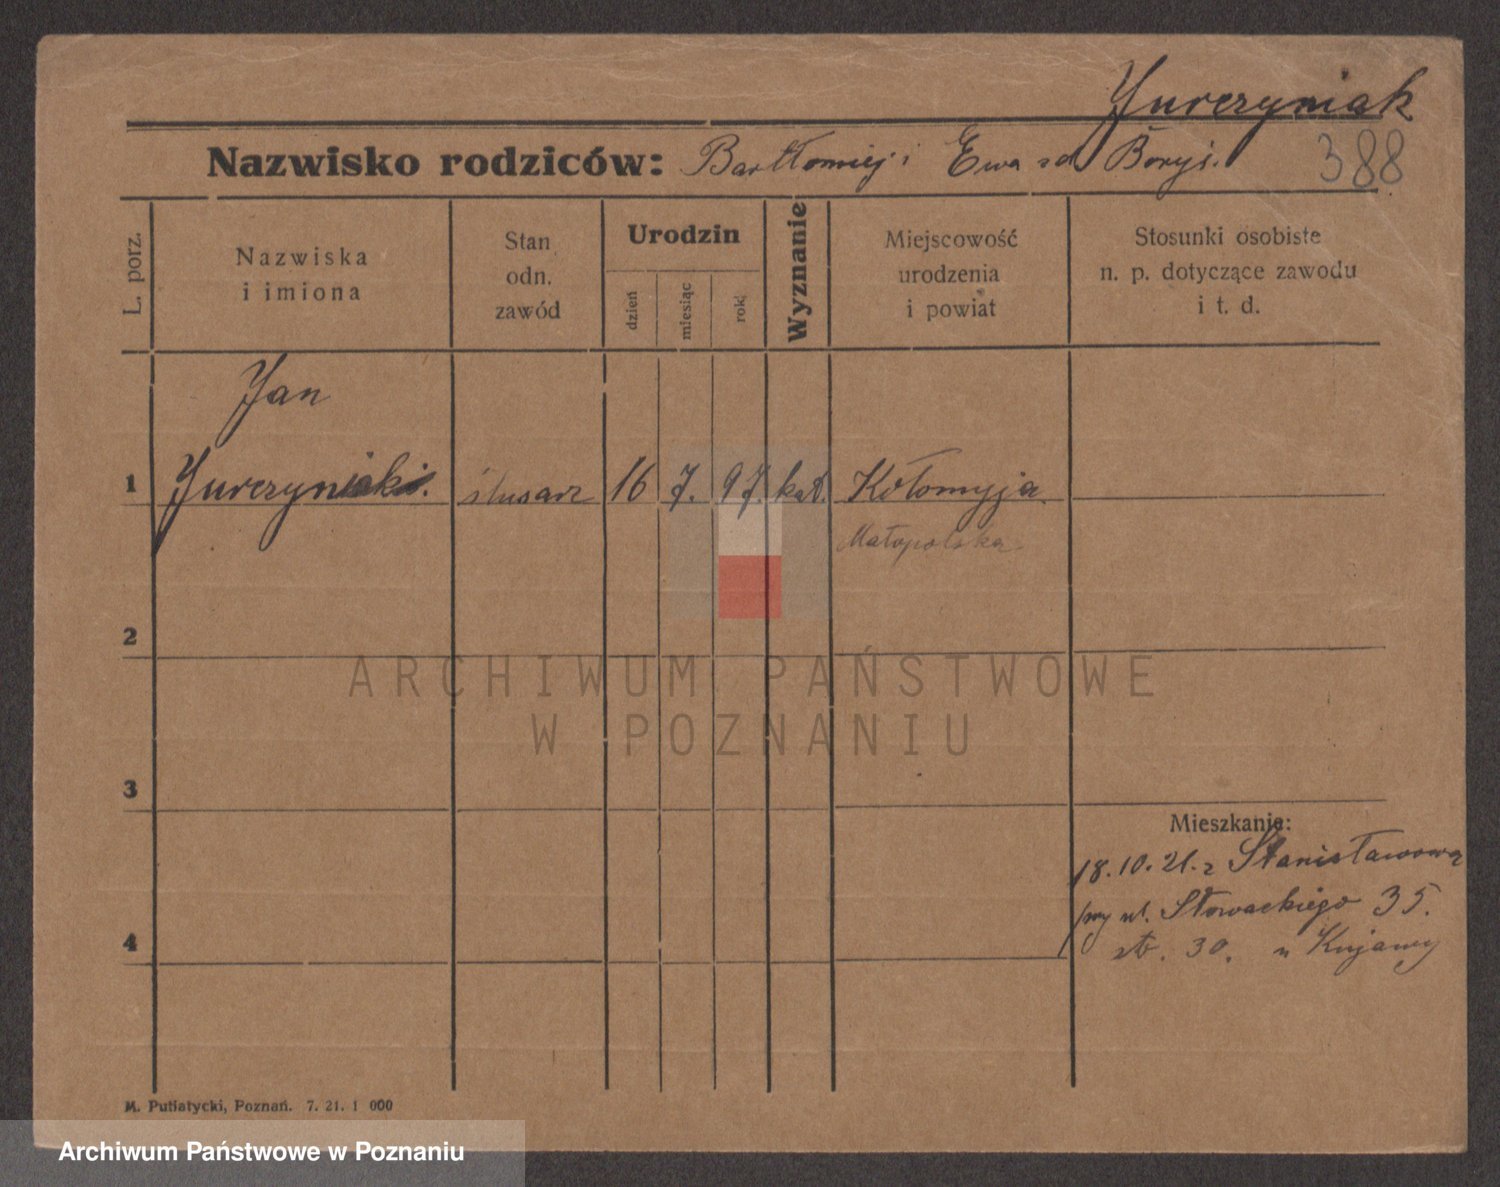 Jurczyniak
Nazwisko rodziców: Bartłomiej i Ewa zd Boryś.
388
L. porz.
Nazwiska
i imiona
Stan
odn.
zawód
Urodzin
dzień
miesiąc
rok
Wyznanie
Miejscowość
urodzenia
i powiat
Stosunki osobiste
n. p. dotyczące zawodu
i t. d.
Jan
1 Jurczyniak ślusarz 16 7. 97. kat. Kołomyja.
Małopolska
2
ARCHIWUM PAŃSTWOWE
W POZNANIU
3
Mieszkanie:
18.10.21. z Stanisławowa
ul. Słowackiego 35.
4
30. u Kujawy
M. Putiatycki, Poznań. 7. 21. 1 000
Archiwum Państwowe w Poznaniu